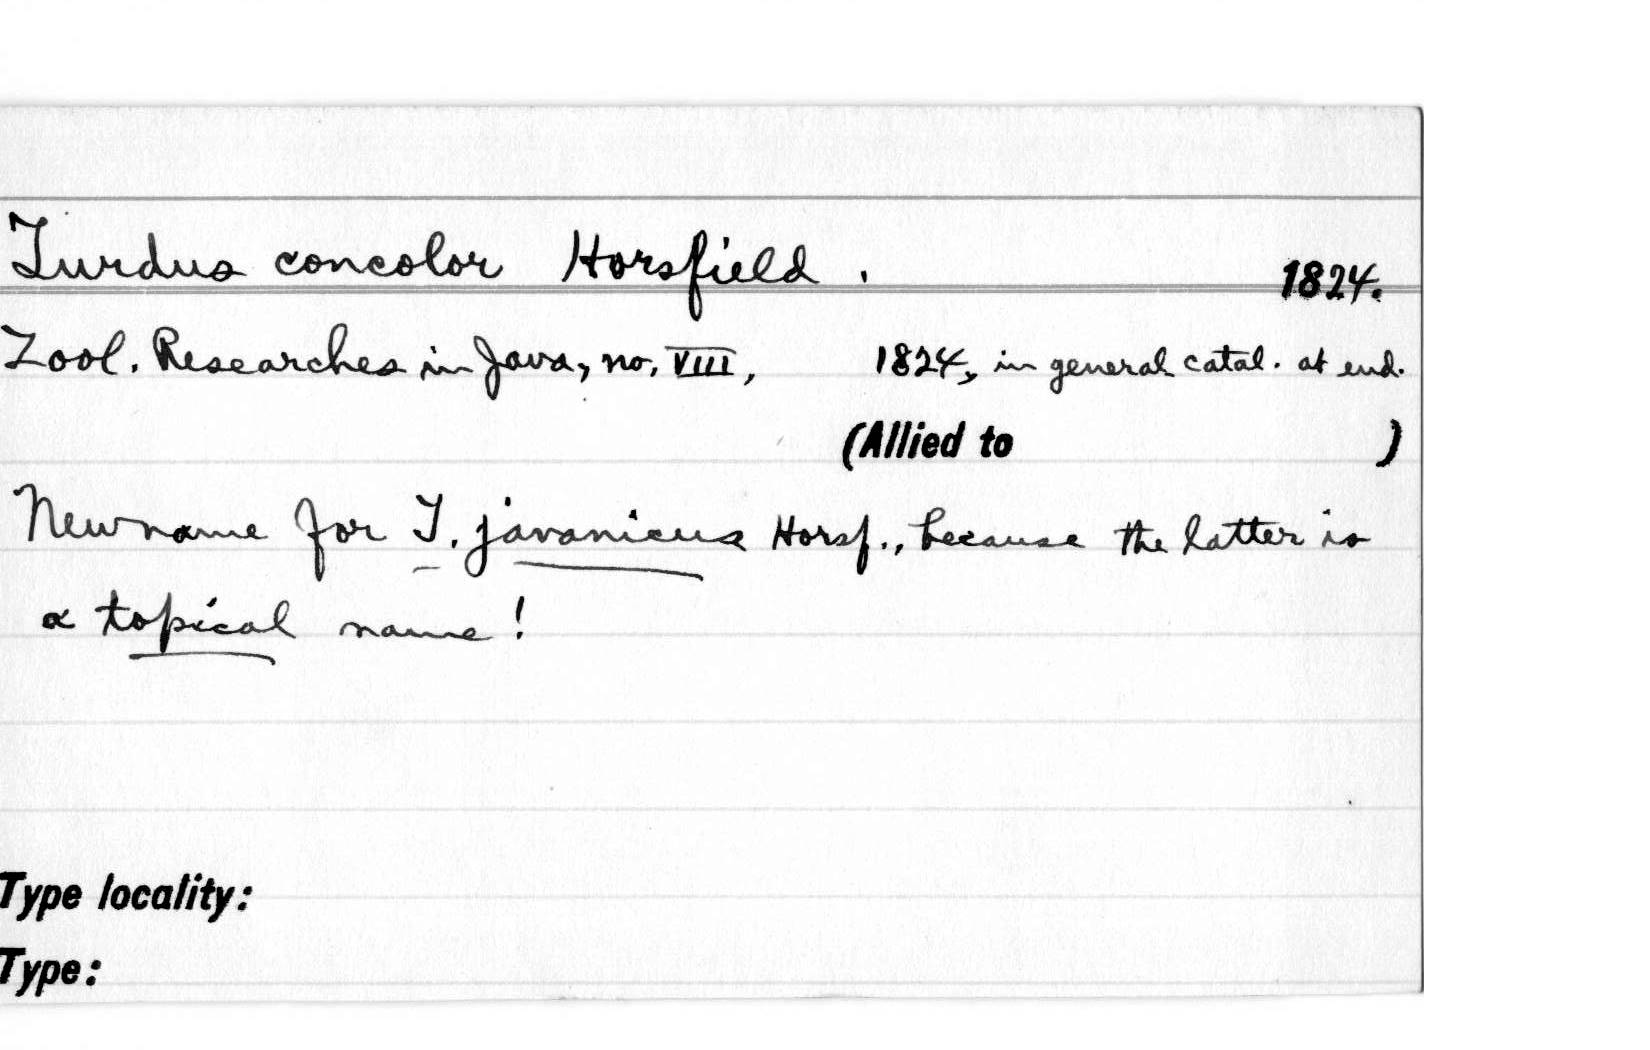 Turdus concolor Horsfield. 1824.
Zool. Researches in Java, no. VIII, 1824, in general catal. at end.
(Allied to )
New name for T. javanicus Horsf., because the latter is
a topical name!
Type locality:
Type: